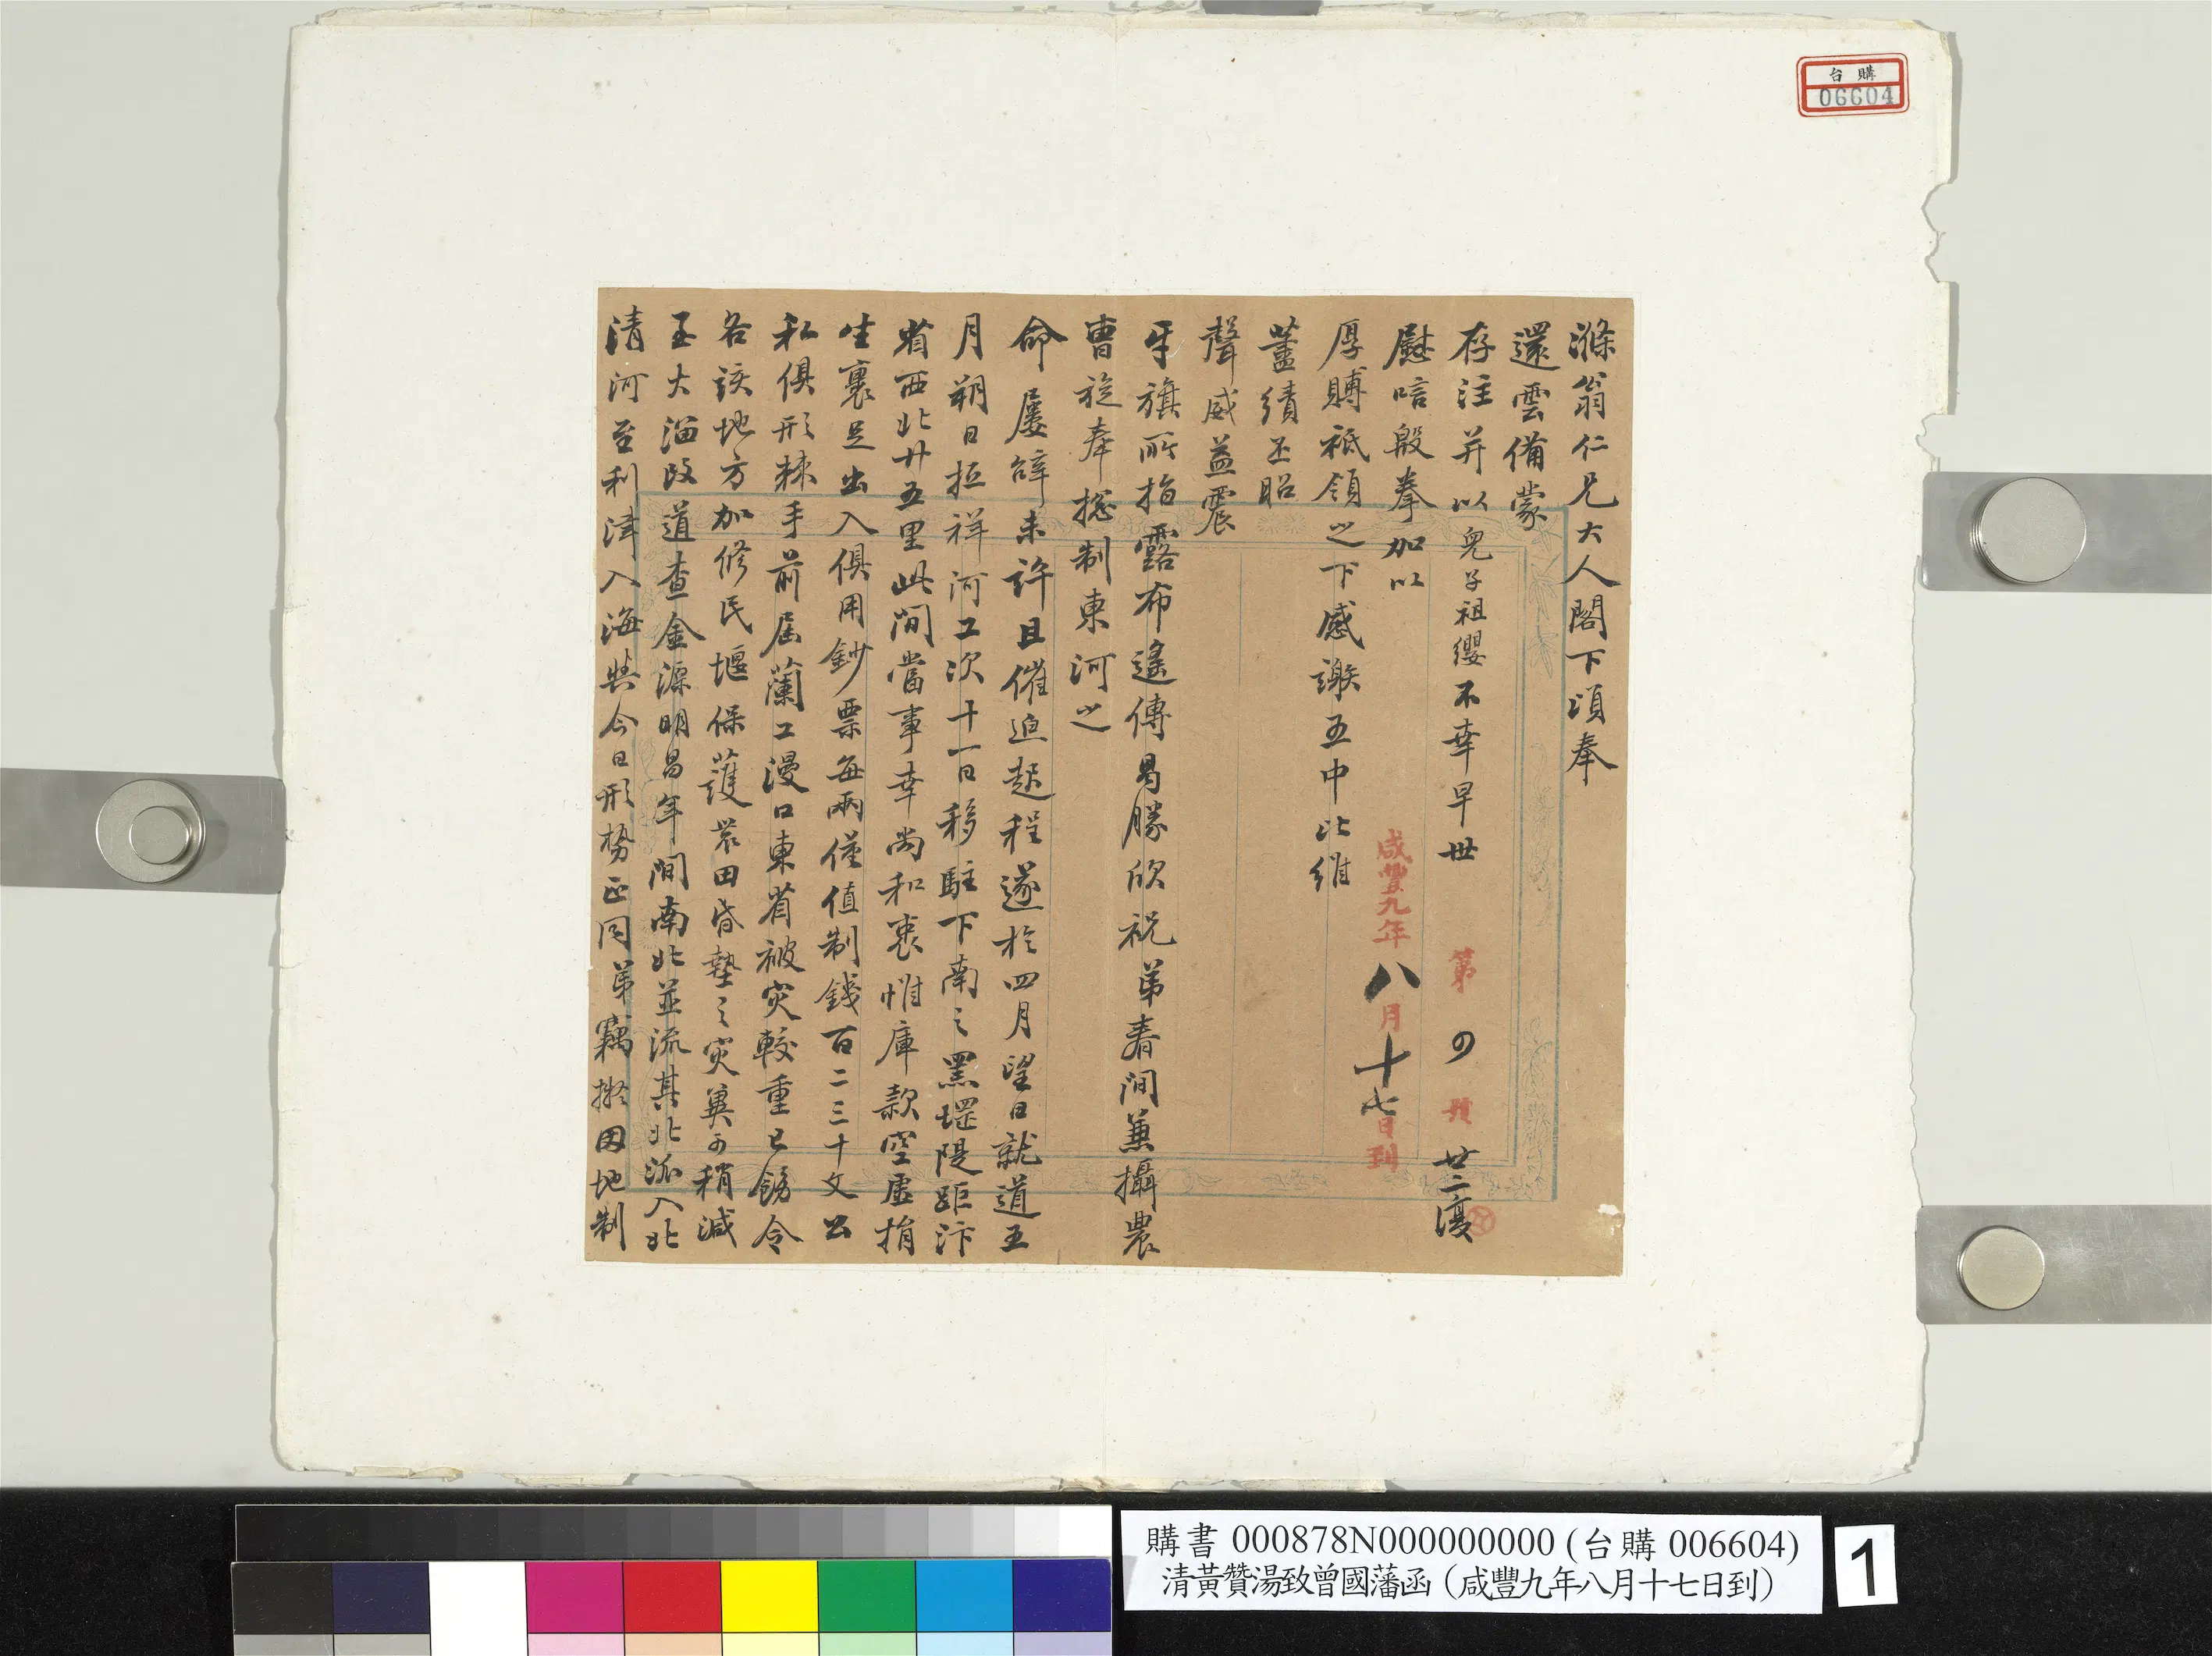 台購
06604
滌翁仁兄大人閣下頃奉
還雲備蒙
存注并以兒子祖纓不幸早世
慰唁殷拳加以
厚賻祗領之下感謝五中比維
藎績丕昭
聲威益震
牙旗所指露布遙傳曷勝欣祝弟春間兼攝農
曹旋奉總制東河之
命屢辭未許且催迫起程遂於四月望日就道五
月朔日抵祥河工次十一日移駐下南之黑堽隄距汴
省西北廿五里此間當事幸尚和衷惟庫款空虛捐
生裹足出入俱用鈔票每兩僅值制錢百二三十文公
私俱形棘手前屆蘭工漫口東省被灾較重已飭令
各該地方加修民堰保護農田昏墊之灾冀可稍減
至大溜改道查金源明昌年間南北並流其北派入北
清河至利津入海與今日形勢正同弟竊擬因地制
咸豐九年八月十七日到
第 號
廿二復
購書 000878N000000000 (台購 006604)
清黃贊湯致曾國藩函（咸豐九年八月十七日到）
1